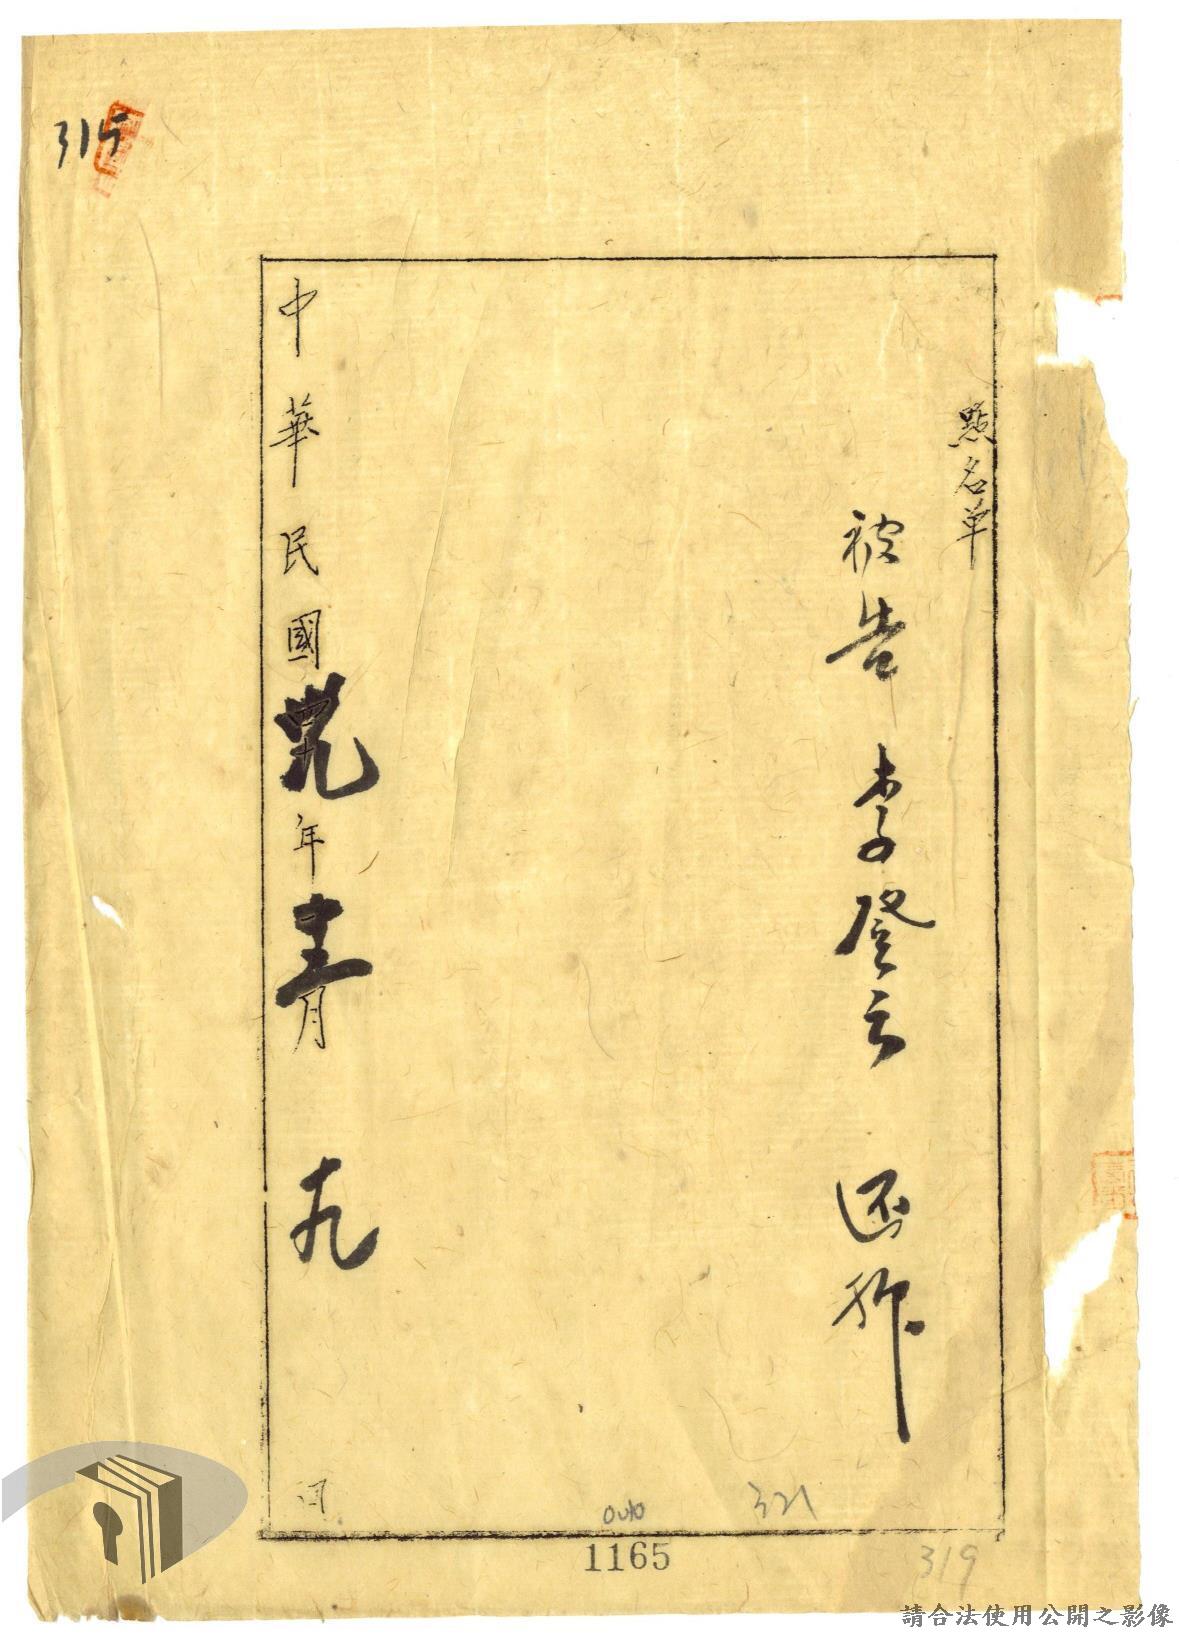 點名單
被告 李登云 还押
中華民國 年 月 十九 日
315
321
319
1165
請合法使用公開之影像